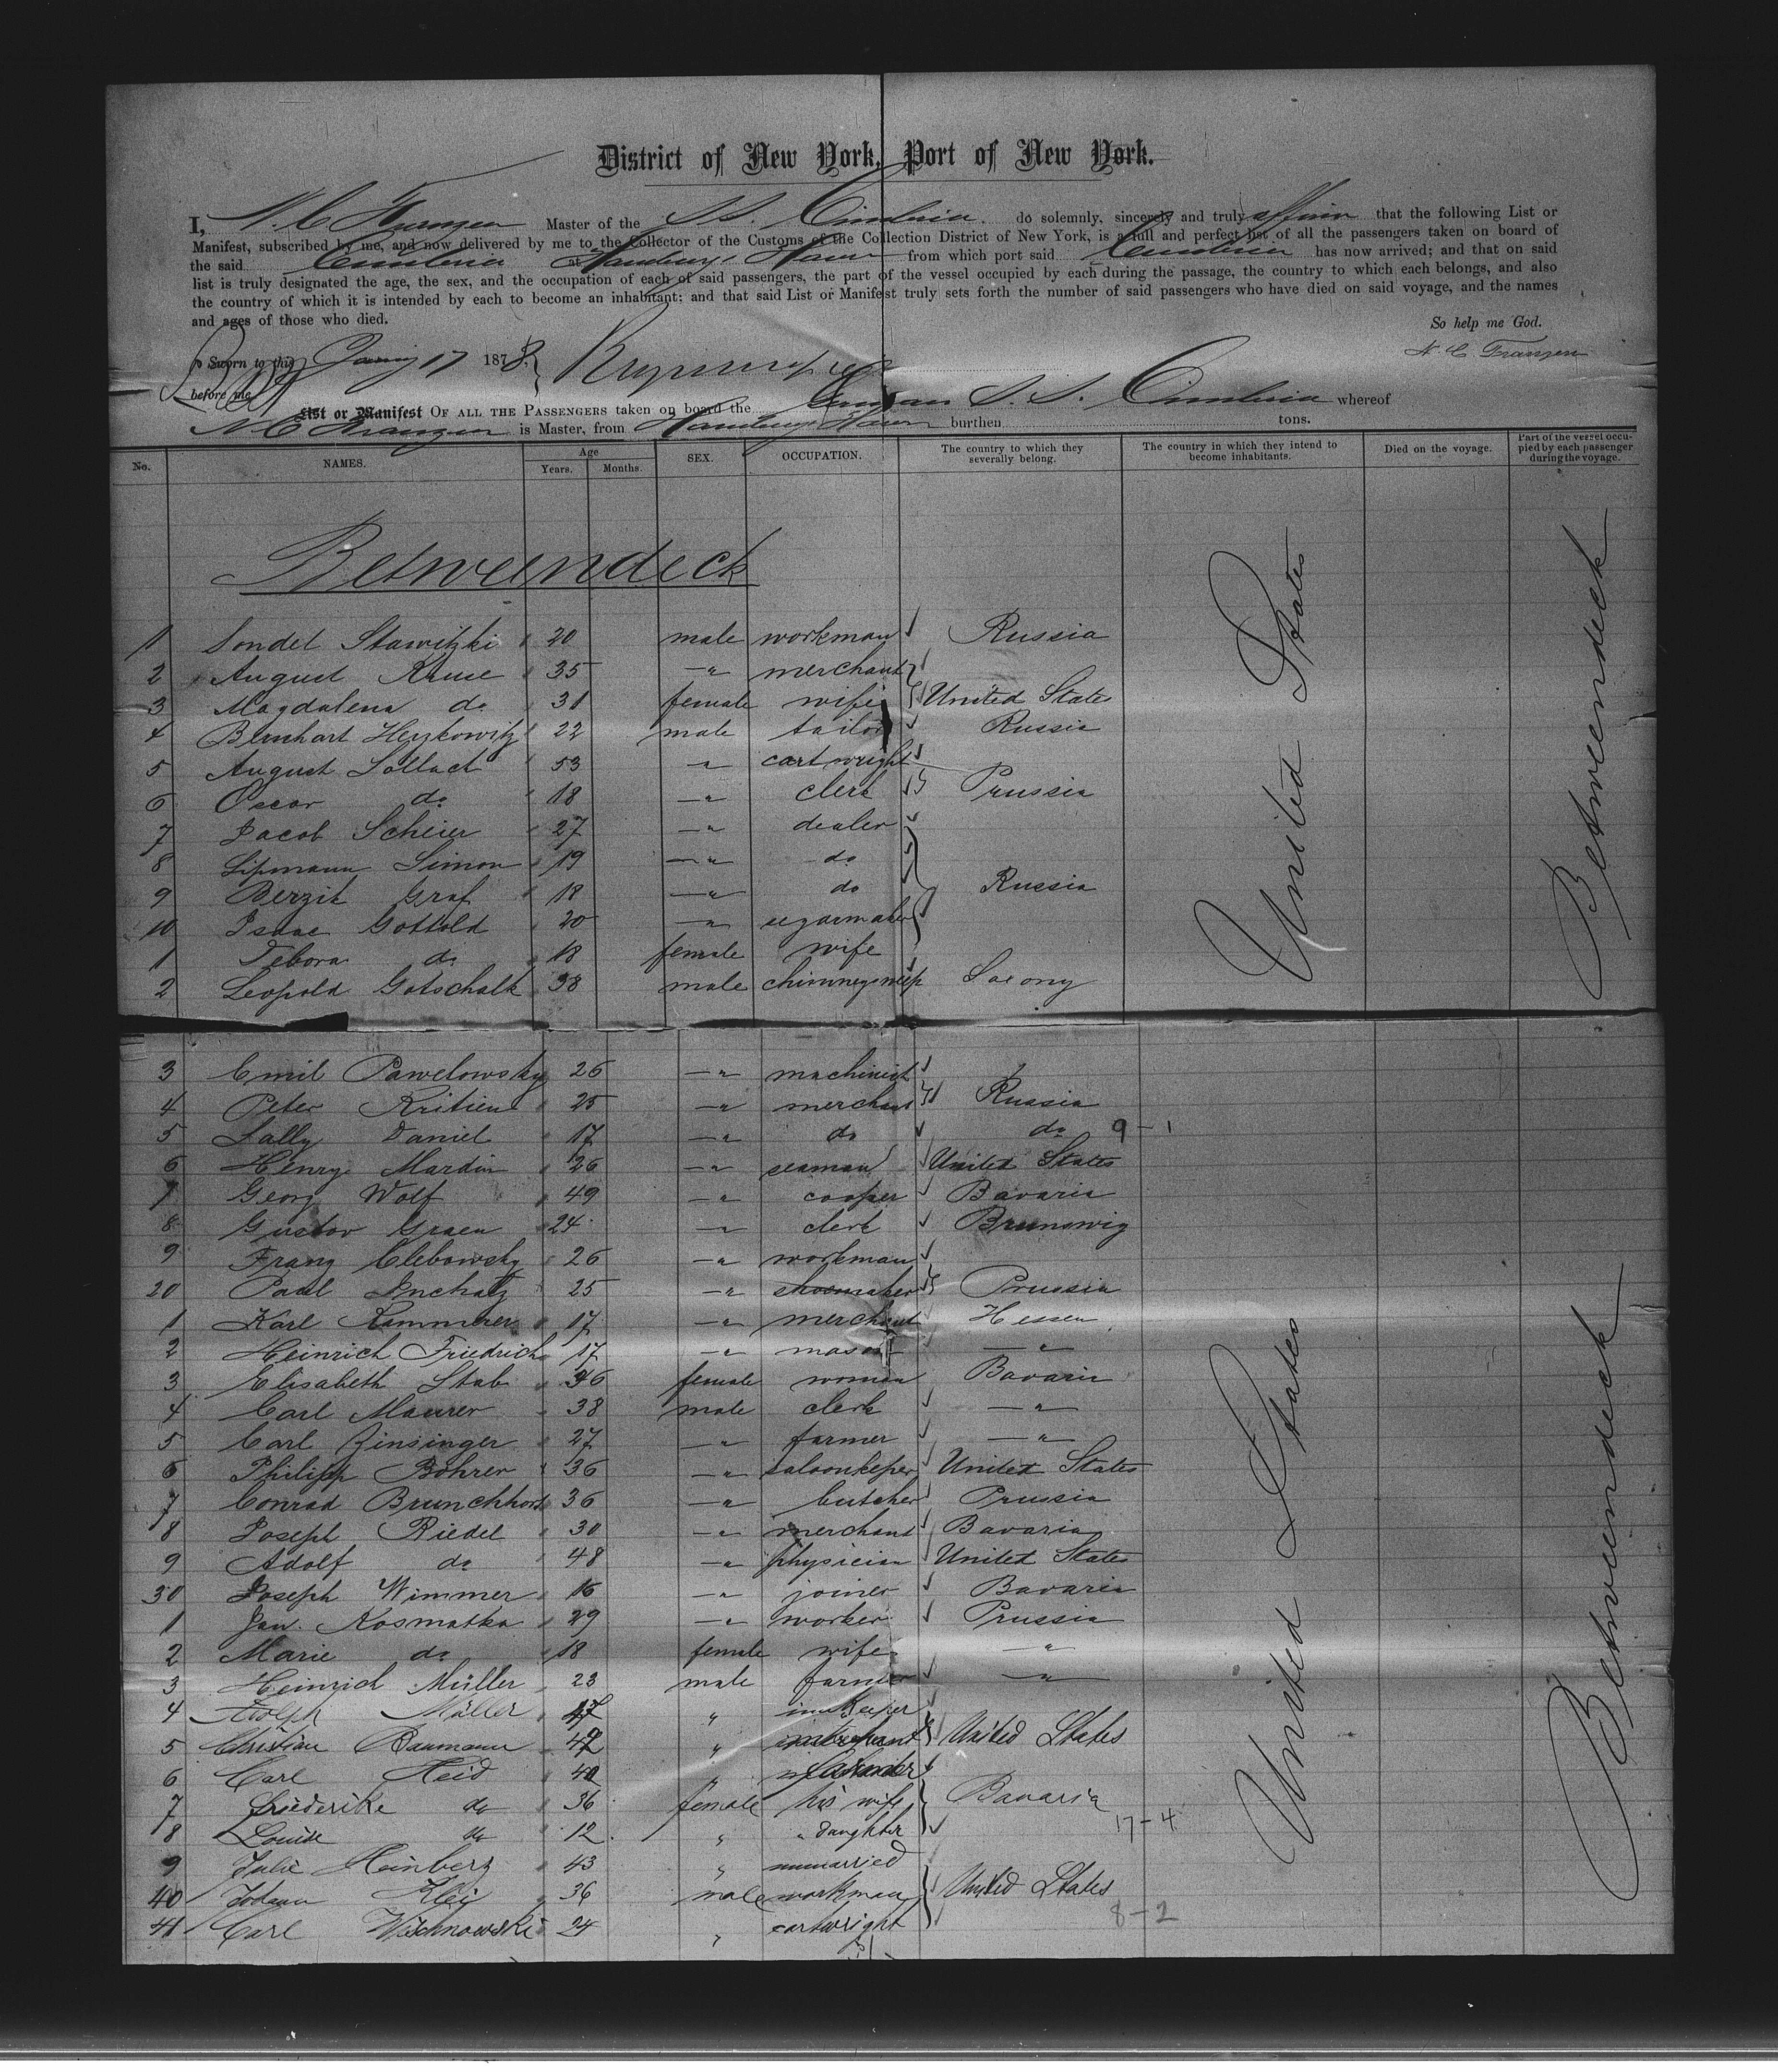 District of New York, Port of New York.
I, N. C. Franzen Master of the S. S. Cimbria do solemnly, sincerely and truly affirm that the following List or
Manifest, subscribed by me, and now delivered by me to the Collector of the Customs of the Collection District of New York, is a full and perfect list of all the passengers taken on board of
the said Cimbria at Hamburg, Havre from which port said Cimbria has now arrived; and that on said
list is truly designated the age, the sex, and the occupation of each of said passengers, the part of the vessel occupied by each during the passage, the country to which each belongs, and also
the country of which it is intended by each to become an inhabitant; and that said List or Manifest truly sets forth the number of said passengers who have died on said voyage, and the names
and ages of those who died.
So help me God.
N. C. Franzen
Sworn to this 17 1878
before me
List or Manifest OF ALL THE PASSENGERS taken on board the German S. S. Cimbria whereof
N C Franzen is Master, from Hamburg, Havre burthen tons.
No. NAMES. Age Years. Months. SEX. OCCUPATION. The country to which they severally belong. The country in which they intend to become inhabitants. Died on the voyage. Part of the vessel occupied by each passenger during the voyage.
Betweendeck
United States
Betweendeck
1 Sondel Stawitzki 20 male workman Russia
2 August Kruse 35 " merchant
3 Magdalena do 31 female wife United States
4 Bernhart Herzkowitz 22 male tailor Russia
5 August Sollach 53 " cartwright
6 Oscar do 18 " clerk Prussia
7 Jacob Scheier 27 " dealer
8 Lipmann Simon 19 " do
9 Berzik Graf 18 " do Russia
10 Isaac Gottold 20 " segarmaker
1 Tebora do 18 female wife
2 Leopold Gotschalk 38 male chimneysweep Saxony
3 Emil Pawelowsky 26 " machinist
4 Peter Kritien 25 " merchant Russia
5 Sally Daniel 17 " do do 9-1
6 Henry Mardin 26 " seaman United States
7 Georg Wolf 49 " cooper Bavaria
8 Gustav Graen 24 " clerk Brunswig
9 Franz Clebowsky 26 " workman
20 Paul 25 " shoemaker Prussia
1 Karl Kammerer 17 " merchant Hessen
2 Heinrich Friedrich 17 " mason "
3 Elisabeth Stab 36 female woman Bavaria
4 Carl Maurer 38 male clerk "
5 Carl Zinsinger 27 " farmer "
6 Philipp Bohrer 36 " saloonkeper United States
7 Conrad Brunchhorst 36 " butcher Prussia
8 Joseph Riedel 30 " merchant Bavaria
9 Adolf do 48 " physician United States
30 Joseph Wimmer 16 " joiner Bavaria
1 Jan. Kosmatka 29 " worker Prussia
2 Marie do 18 female wife "
3 Heinrich Müller 23 male farmer "
4 Adolph Müller 47 " innkeeper
5 Christian Baumann 42 " United States
6 Carl Heid 42 "
7 Friederike do 36 female his wife Bavaria
8 Louise do 12 " " daughter 17-4
9 Julie Heinberg 43 " unmarried
40 Johann Klei 36 male workman United States
41 Carl Wischnowski 24 " cartwright 8-2
United States
Betweendeck